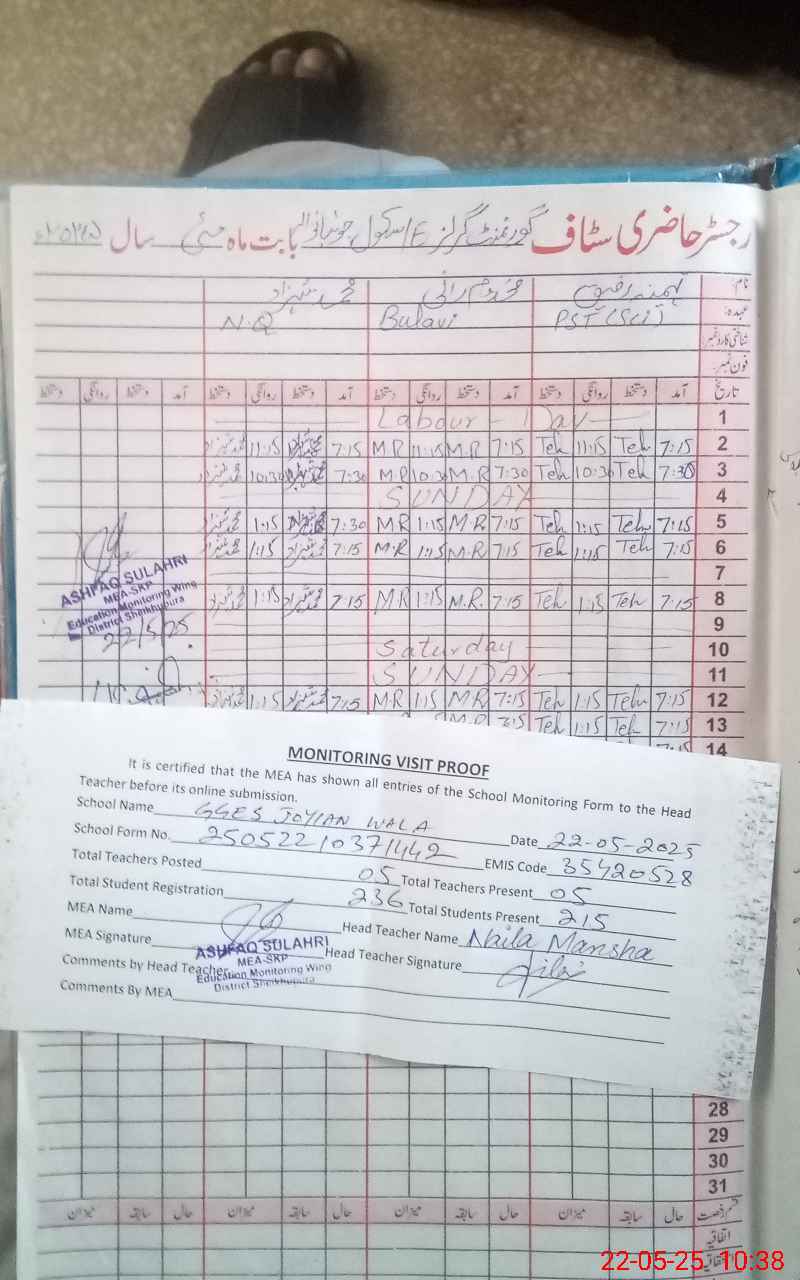 رجسٹر حاضری سٹاف گورنمنٹ گرلز E/سکول جوئیانوالہ بابت ماہ مئی سال ۲۰۲۵ء
نام:
عہدہ: PST (Sci) Bulavi N.Q
شناختی کارڈ نمبر:
فون نمبر:
تاریخ آمد دستخط روانگی دستخط آمد دستخط روانگی دستخط آمد دستخط روانگی دستخط آمد دستخط روانگی دستخط
1 Labour - Day
2 7:15 Teh 11:15 Teh 7:15 M.R 11:15 M.R 7:15 11:15
3 7:30 Teh 10:30 Teh 7:30 M.R 10:30 M.R 7:30 10:30
4 SUNDAY
5 7:15 Teh 1:15 Teh 7:15 M.R 1:15 MR 7:30 1:15
6 7:15 Teh 1:15 Teh 7:15 M.R 1:15 M.R 7:15 1:15
7
8 7:15 Teh 1:15 Teh 7:15 M.R. 1:15 MR 7:15 1:15
9
10 Saturday
11 SUNDAY
12 7:15 Teh 1:15 Teh 7:15 MR 1:15 MR 7:15 1:15
13 7:15 Teh 1:15 Teh 7:15 M.R
14 7:15
ASHFAQ SULAHRI
MEA-SKP
Education Monitoring Wing
District Sheikhupura
22/5/25
MONITORING VISIT PROOF
It is certified that the MEA has shown all entries of the School Monitoring Form to the Head
Teacher before its online submission.
School Name GGES JOYIAN WALA Date 22-05-2025
School Form No. 25052210371442 EMIS Code 35420528
Total Teachers Posted 05 Total Teachers Present 05
Total Student Registration 236 Total Students Present 215
MEA Name Head Teacher Name Naila Mansha
MEA Signature Head Teacher Signature
Comments by Head Teacher
Comments By MEA
ASHFAQ SULAHRI
MEA-SKP
Education Monitoring Wing
District Sheikhupura
28
29
30
31
قسم رخصت حال سابقہ میزان حال سابقہ میزان حال سابقہ میزان حال سابقہ میزان
اتفاقیہ
22-05-25 10:38